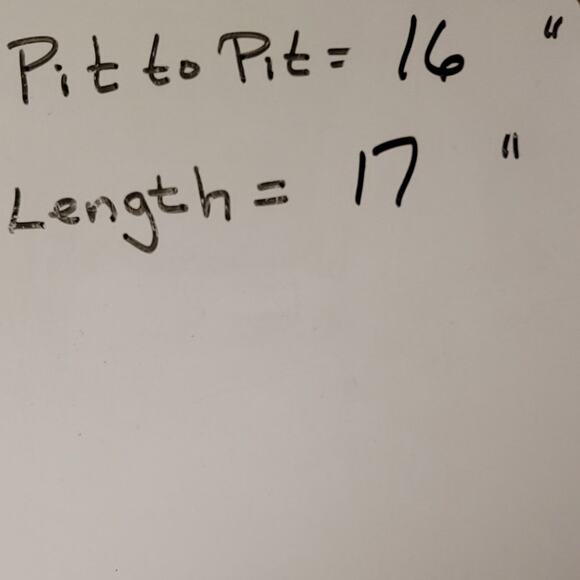 Pit to Pit = 16 "
Length = 17 "